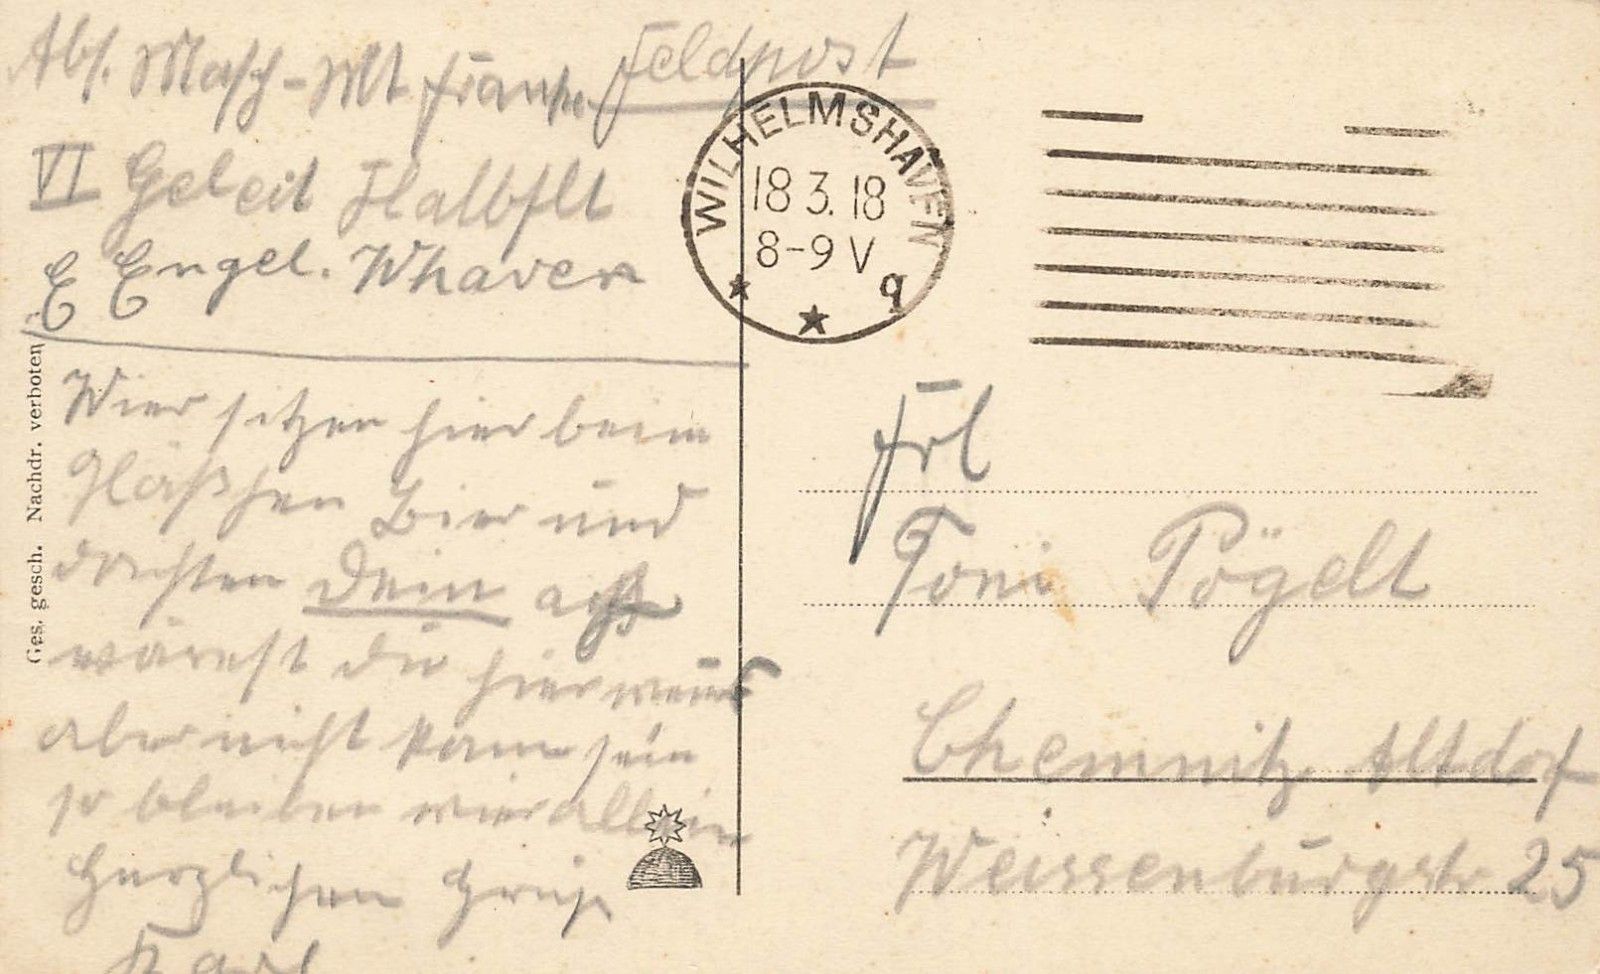 Abs. Masch-Mt Franke
Feldpost
VI Geleit Halbflt
E Engel. Whaven
WILHELMSHAVEN
18 3. 18
8-9 V
q
Wier sitzen hier beim
Gläßchen Bier und
dachten Dein ach
wärest du hier
aber nicht kann sein
so bleiben wier allein
Herzlichen Gruß
Karl
Frl
Toni Pögelt
Chemnitz. Altdorf
Weissenburgstr 25
Ges. gesch. Nachdr. verboten